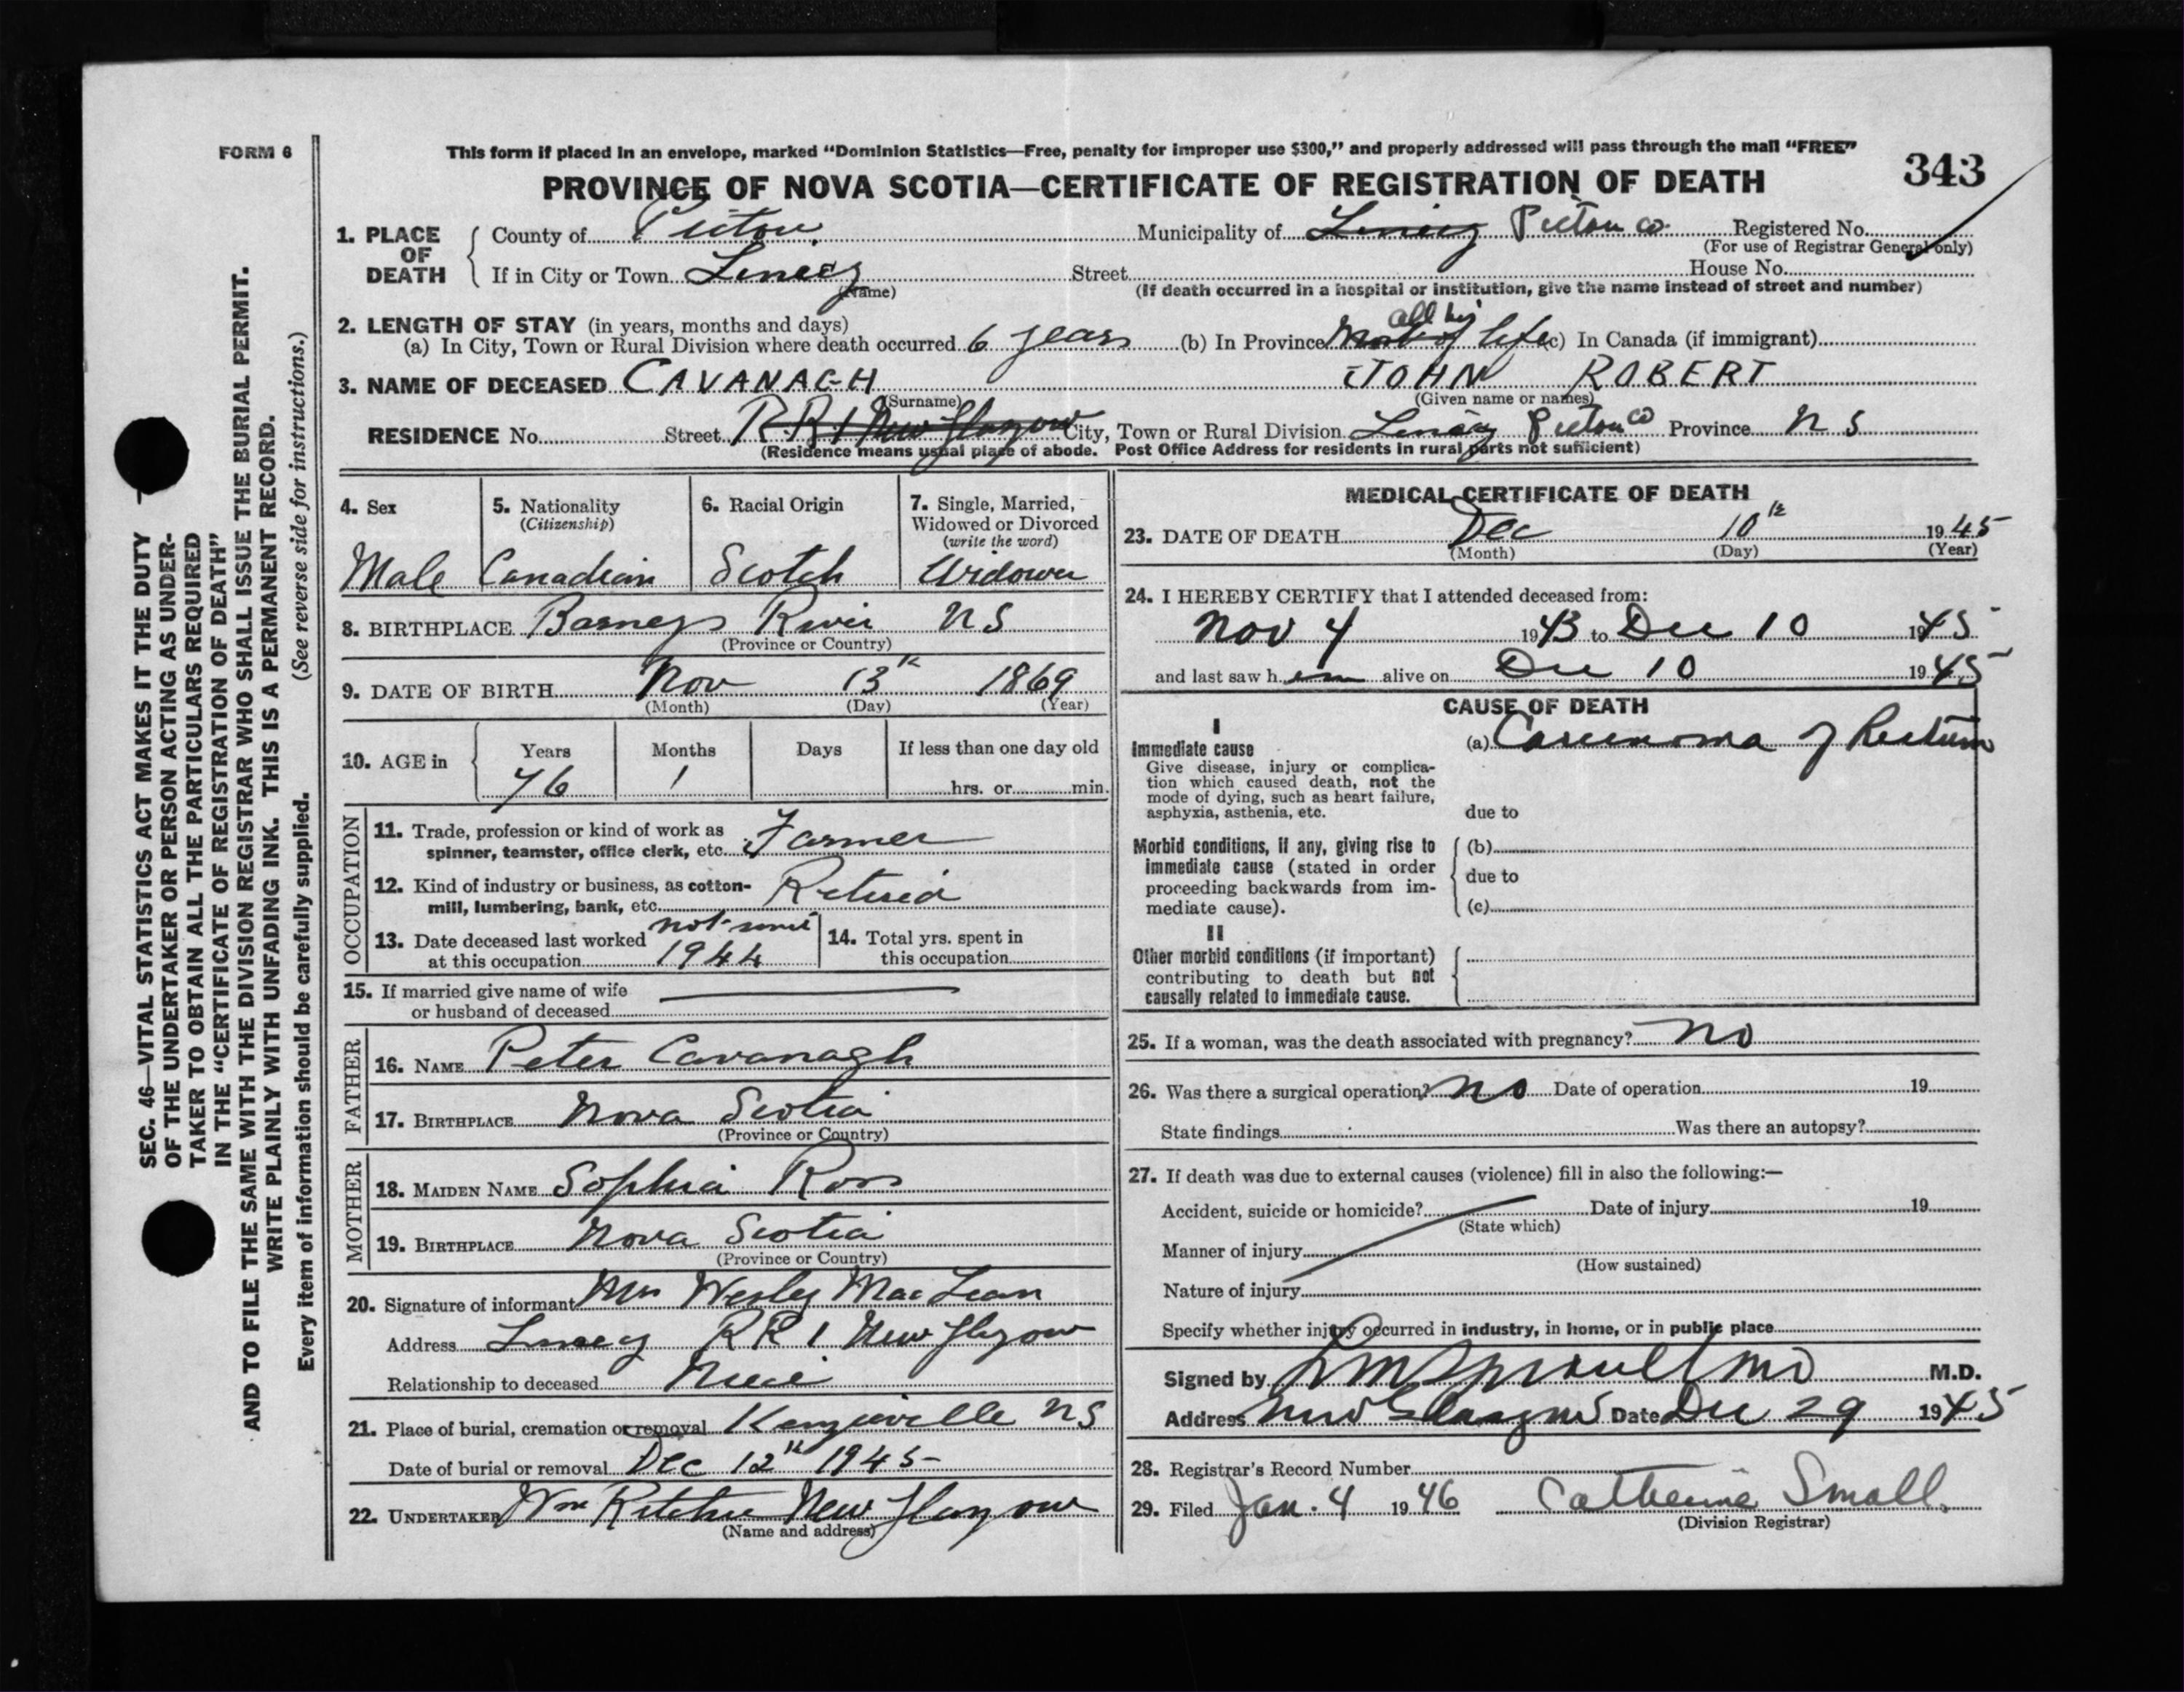 FORM 6
This form if placed in an envelope, marked “Dominion Statistics—Free, penalty for improper use $300,” and properly addressed will pass through the mail “FREE”
343
PROVINCE OF NOVA SCOTIA—CERTIFICATE OF REGISTRATION OF DEATH
1. PLACE OF DEATH
County of Pictou. Municipality of Pictou Co. Registered No.
(For use of Registrar General only)
If in City or Town Street House No.
(Name) (If death occurred in a hospital or institution, give the name instead of street and number)
2. LENGTH OF STAY (in years, months and days)
all his
(a) In City, Town or Rural Division where death occurred 6 years (b) In Province Most of life (c) In Canada (if immigrant)
3. NAME OF DECEASED CAVANAGH JOHN ROBERT
(Surname) (Given name or names)
RESIDENCE No. Street R R 1 New Glasgow City, Town or Rural Division Pictou Co Province N S
(Residence means usual place of abode. Post Office Address for residents in rural parts not sufficient)
4. Sex
Male
5. Nationality
(Citizenship)
Canadian
6. Racial Origin
Scotch
7. Single, Married,
Widowed or Divorced
(write the word)
Widower
8. BIRTHPLACE Barneys River N S
(Province or Country)
9. DATE OF BIRTH Nov 13th 1869
(Month) (Day) (Year)
10. AGE in
Years Months Days If less than one day old
76 1 hrs. or min.
OCCUPATION
11. Trade, profession or kind of work as
spinner, teamster, office clerk, etc. Farmer
12. Kind of industry or business, as cotton-
mill, lumbering, bank, etc. Retired
13. Date deceased last worked not since
at this occupation 1944
14. Total yrs. spent in
this occupation
15. If married give name of wife
or husband of deceased
FATHER
16. NAME Peter Cavanagh
17. BIRTHPLACE Nova Scotia
(Province or Country)
MOTHER
18. MAIDEN NAME Sophia Ross
19. BIRTHPLACE Nova Scotia
(Province or Country)
20. Signature of informant Mrs Wesley MacLean
Address R R 1 New Glasgow
Relationship to deceased Niece
21. Place of burial, cremation or removal Kenzieville N S
Date of burial or removal Dec 12th 1945
22. UNDERTAKER Wm Ritchie New Glasgow
(Name and address)
MEDICAL CERTIFICATE OF DEATH
23. DATE OF DEATH Dec 10th 1945
(Month) (Day) (Year)
24. I HEREBY CERTIFY that I attended deceased from:
Nov 4 1943 to Dec 10 1945
and last saw h im alive on Dec 10 1945
CAUSE OF DEATH
I
Immediate cause
(a) Carcinoma of Rectum
Give disease, injury or complica-
tion which caused death, not the
mode of dying, such as heart failure,
asphyxia, asthenia, etc.
due to
Morbid conditions, if any, giving rise to
immediate cause (stated in order
proceeding backwards from im-
mediate cause).
(b)
due to
(c)
II
Other morbid conditions (if important)
contributing to death but not
causally related to immediate cause.
25. If a woman, was the death associated with pregnancy? No
26. Was there a surgical operation? No Date of operation 19
State findings Was there an autopsy?
27. If death was due to external causes (violence) fill in also the following:—
Accident, suicide or homicide? Date of injury 19
(State which)
Manner of injury
(How sustained)
Nature of injury
Specify whether injury occurred in industry, in home, or in public place
Signed by MD M.D.
Address New Glasgow NS Date Dec 29 1945
28. Registrar's Record Number
29. Filed Jan. 4 1946 Catherine Small.
(Division Registrar)
SEC. 46—VITAL STATISTICS ACT MAKES IT THE DUTY
OF THE UNDERTAKER OR PERSON ACTING AS UNDER-
TAKER TO OBTAIN ALL THE PARTICULARS REQUIRED
IN THE “CERTIFICATE OF REGISTRATION OF DEATH”
AND TO FILE THE SAME WITH THE DIVISION REGISTRAR WHO SHALL ISSUE THE BURIAL PERMIT.
WRITE PLAINLY WITH UNFADING INK. THIS IS A PERMANENT RECORD.
Every item of information should be carefully supplied. (See reverse side for instructions.)